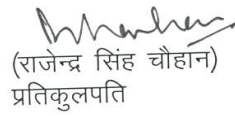 (राजेन्द्र सिंह चौहान)
प्रतिकुलपति